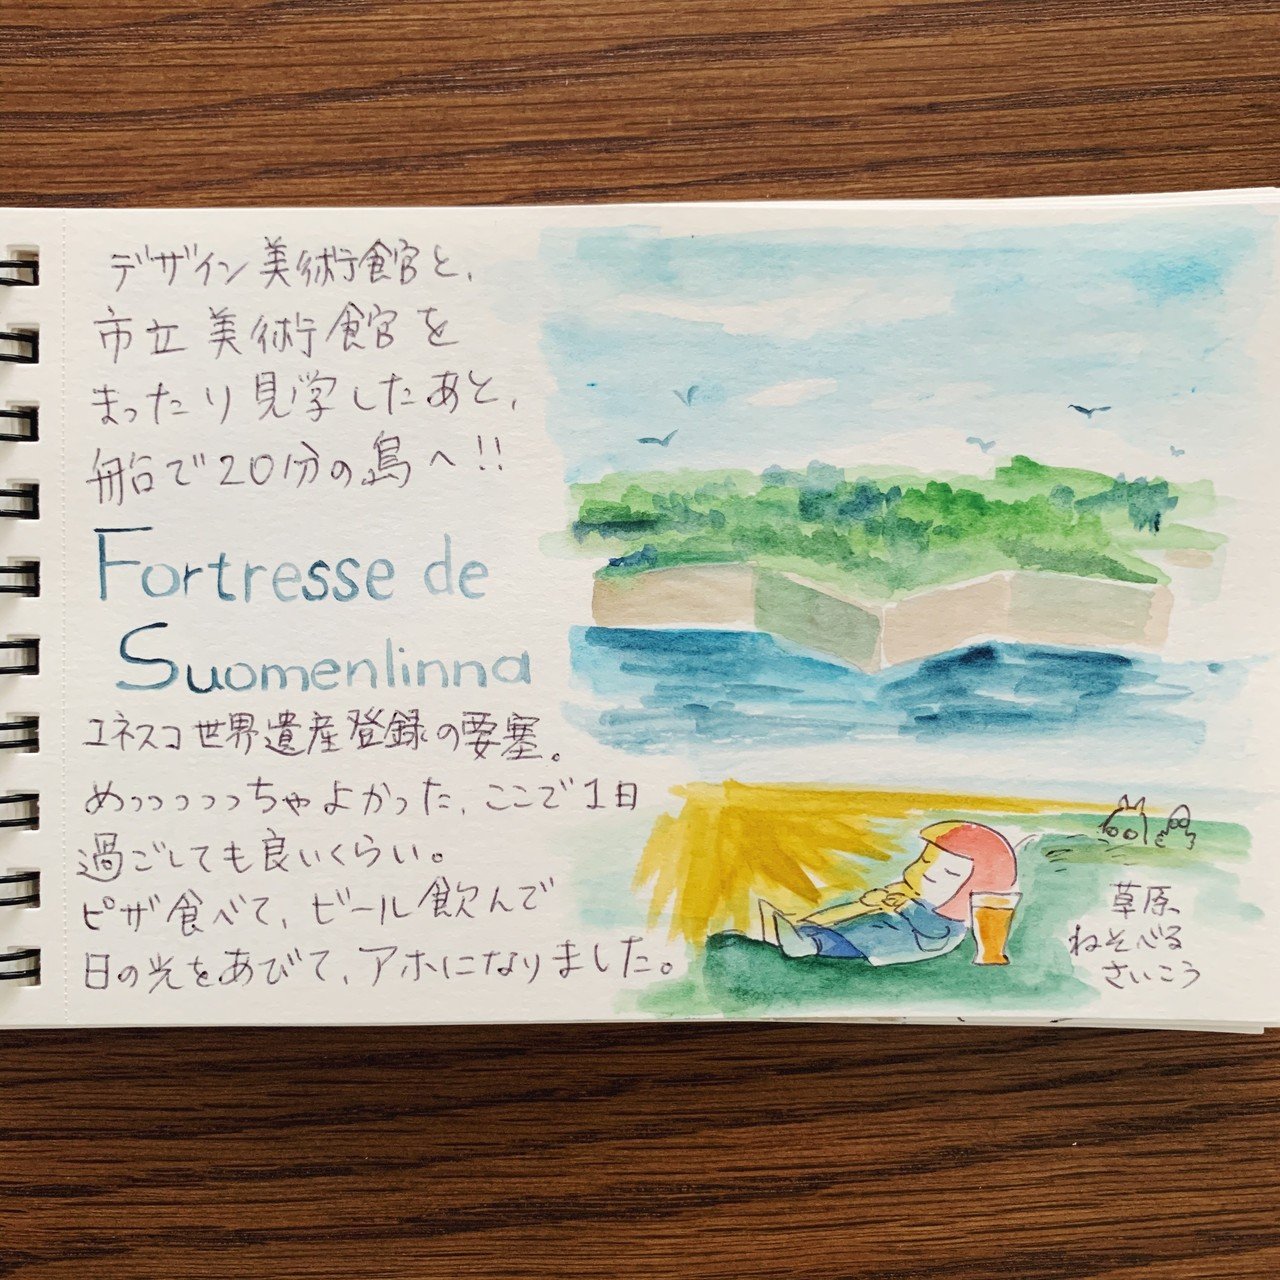 デザイン美術館と、
市立美術館を
まったり見学したあと、
船で20分の島へ!!
Fortresse de
Suomenlinna
ユネスコ世界遺産登録の要塞。
めっっっっっちゃよかった、ここで1日
過ごしても良いくらい。
ピザ食べて、ビール飲んで
日の光をあびて、アホになりました。
草原、
ねそべる
さいこう